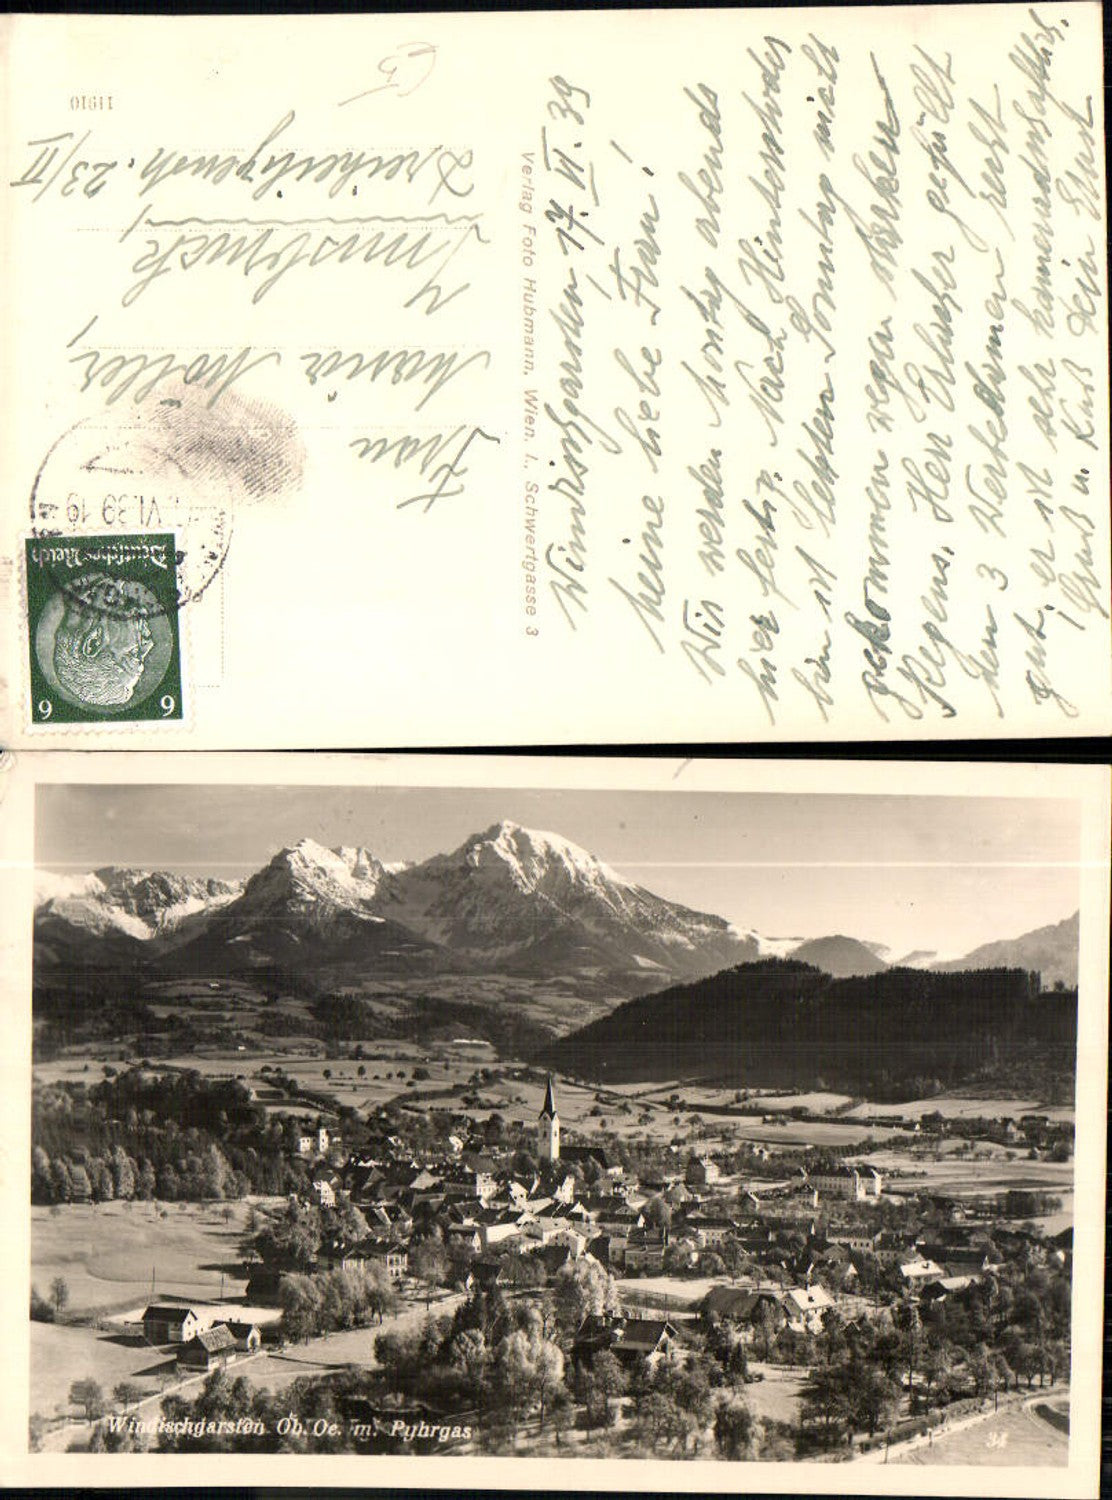 Windischgarsten, 17. VI. 39
Meine liebe Frau!
Wir werden Montag abends
hier fertig. Nach Hinterstoder
bin ich letzten Sonntag nicht
gekommen wegen starken
Regens. Herr gefällt
den 3 Werbedamen recht
gut, er ist sehr kameradschaftlich.
Gruß u. Kuß Dein Ernst
Verlag Foto Hubmann, Wien, I., Schwertgasse 3
Frau
Maria Möller,
Innsbruck,
Dreiheiligenstr. 23/II
11910
Deutsches Reich
6 6
VI.39.19
Windischgarsten Ob. Oe. m. Pyhrgas
34